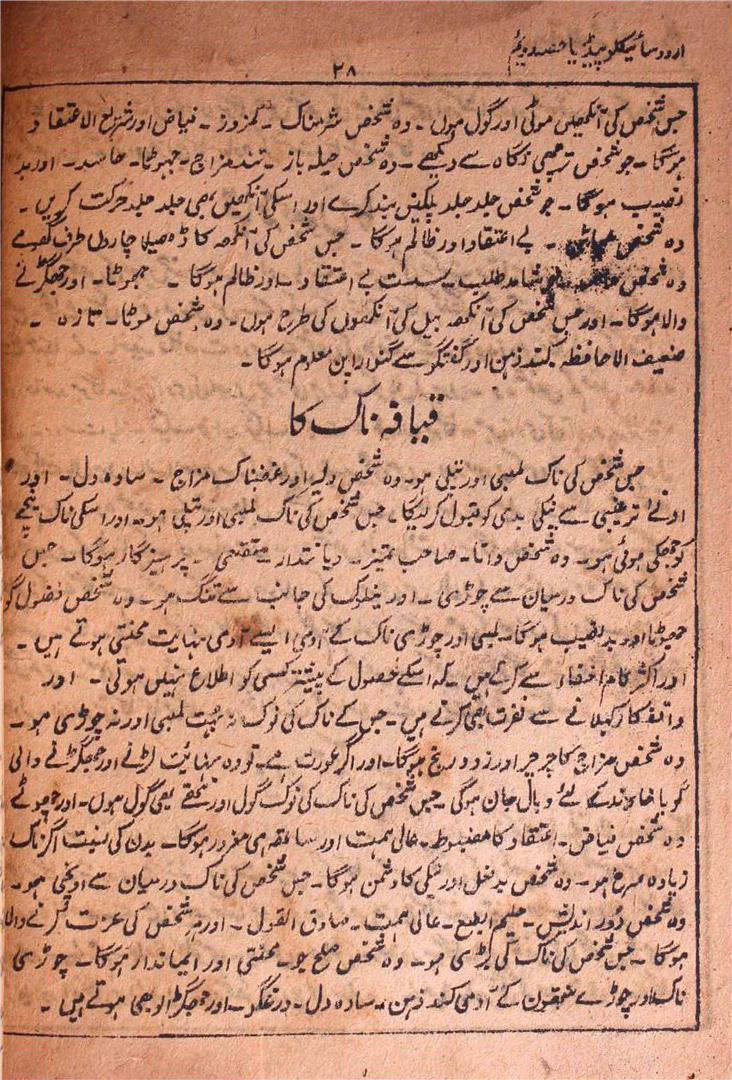 اردو سائیکلوپیڈیا حصہ دویٔم
۲۸
جس شخص کی آنکھیں موٹی اور گول ہوں۔ وہ شخص شرمناک۔ کمزور۔ فیاض اور سریع الاعتقاد
ہوگا۔ جو شخص ترچھی نگاہ سے دیکھے۔ وہ شخص حیلہ باز۔ تند مزاج۔ جہوٹا۔ حاسد۔ اور بد
نصیب ہوگا۔ جو شخص جلد جلد پلکیں بند کرے اور اسکی آنکھیں بھی جلد جلد حرکت کریں۔
وہ شخص ۔ بے اعتقاد اور ظالم ہوگا۔ جس شخص کی آنکھ کا ڈھیلا چاروں طرف گھومے
وہ شخص طلب۔ سست بے اعتقاد۔ اور ظالم ہوگا۔ جہوٹا۔ اور جھگڑنے
والا ہوگا۔ اور جس شخص کی آنکھ بیل کی آنکھوں کی طرح ہوں۔ وہ شخص موٹا۔ تازہ۔
ضعیف الاحافظہ کند ذہن اور گفتگو سے گنوار این معلوم ہوگا۔
قیافہ ناک کا
جس شخص کی ناک لمبی اور پتلی ہو۔ وہ شخص دلیر اور غضبناک مزاج۔ سادہ دل۔ اور
ادنےٰ ترغیبی سے نیکی بدی کو قبول کرلیگا۔ جس شخص کی ناک لمبی اور پتلی ہو۔ اور اسکی ناک نیچے
کو جھکی ہوئی ہو۔ وہ شخص دانا۔ صاحب تمیز۔ دیانتدار۔ متقی۔ پرہیزگار ہوگا۔ جس
شخص کی ناک درمیان سے چوڑی۔ اور پھلک کی جانب سے تنگ ہو۔ وہ شخص فضول گو
جھوٹا اور بدنصیب ہوگا۔ لمبی اور چوڑی ناک کے آدمی ایسے آدمی نہایت محنتی ہوتے ہیں۔
اور اکثر کام اخفاء سے کرتے ہیں۔ کہ اسکے حصول کے پیشتر کسی کو اطلاع نہیں ہوتی۔ اور
واقفکار کہلانے سے نفرت بھی کرتے ہیں۔ جس کے ناک کی نوک نہ بہت لمبی اور نہ چوڑی ہو۔
وہ شخص مزاج کا چرچر اور زود رنج ہوگا۔ اور اگر عورت ہے۔ تو وہ نہائیت لڑنے اور جھگڑنے والی
گویا خاوند کے لئے وبال جان ہوگی۔ جس شخص کی ناک کی نوک گول اور نتھنے بھی گول ہوں۔ اور چھوٹے
وہ شخص فیاض۔ اعتقاد کا مضبوط۔ عالی ہمت اور ساتھ ہی مغرور ہوگا۔ بدن کی نسبت اگر ناک
زیادہ سرخ ہو۔ وہ شخص بدفعل اور نیکی کا دشمن ہوگا۔ جس شخص کی ناک درمیان سے اونچی ہو۔
وہ شخص دُور اندیش۔ حلیم الطبع۔ عالی ہمت۔ صادق القول۔ اور ہر شخص کی عزت کرنے والا
ہوگا۔ جس شخص کی ناک بڑی ہو۔ وہ شخص صلح جو۔ محنتی اور ایماندار ہوگا۔ چوڑی
ناک اور چوڑے نتھنوں کے آدمی کند ذہن، سادہ دل۔ دروغگو۔ اور جھگڑالو بھی ہوتے ہیں۔